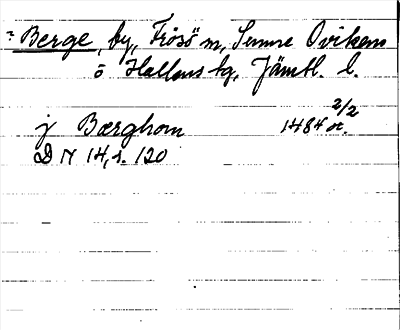 Berge, by, Frösö m, Sunne Ovikens
o Hallens tg, Jämtl. l.
j Bærghom 1484 2/2 or.
D N 14, s. 120